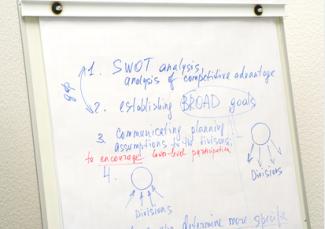 1. SWOT analysis,
analysis of competitive advantage
2. establishing BROAD goals
3. Communicating planning
assumptions to the divisions,
to encourage lower-level participation
4.
Divisions
Divisions
determine more specific